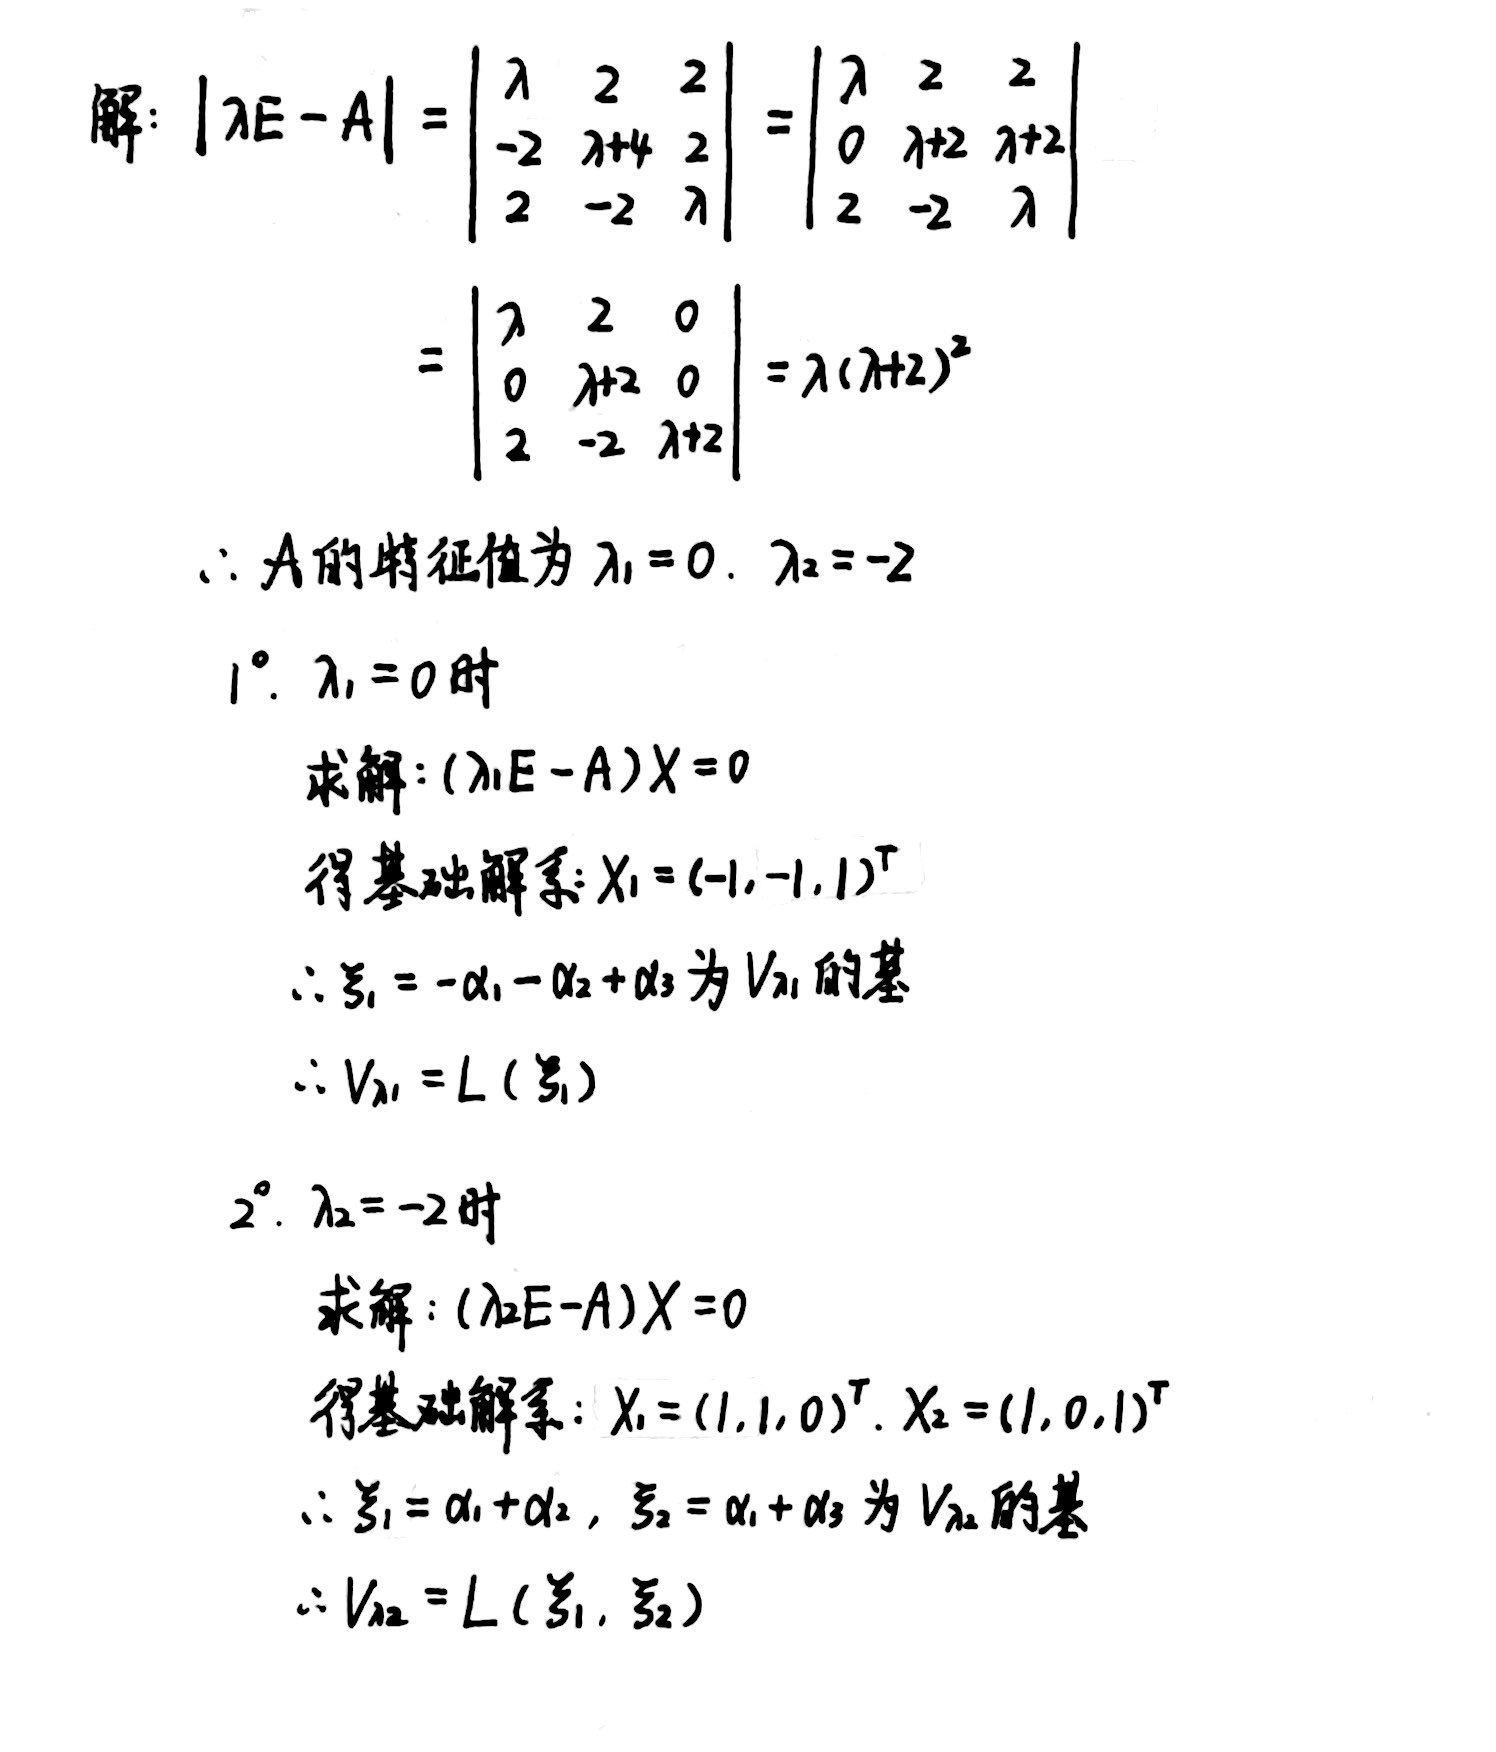 解: |λE-A| = |λ 2 2; -2 λ+4 2; 2 -2 λ| = |λ 2 2; 0 λ+2 λ+2; 2 -2 λ|
= |λ 2 0; 0 λ+2 0; 2 -2 λ+2| = λ(λ+2)²
∴ A的特征值为 λ₁=0. λ₂=-2
1°. λ₁=0时
求解: (λ₁E-A)X=0
得基础解系: X₁=(-1,-1,1)ᵀ
∴ ξ₁ = -α₁-α₂+α₃ 为 Vλ₁ 的基
∴ Vλ₁ = L(ξ₁)
2°. λ₂=-2时
求解: (λ₂E-A)X=0
得基础解系: X₁=(1,1,0)ᵀ. X₂=(1,0,1)ᵀ
∴ ξ₁=α₁+α₂, ξ₂=α₁+α₃ 为 Vλ₂ 的基
∴ Vλ₂ = L(ξ₁, ξ₂)